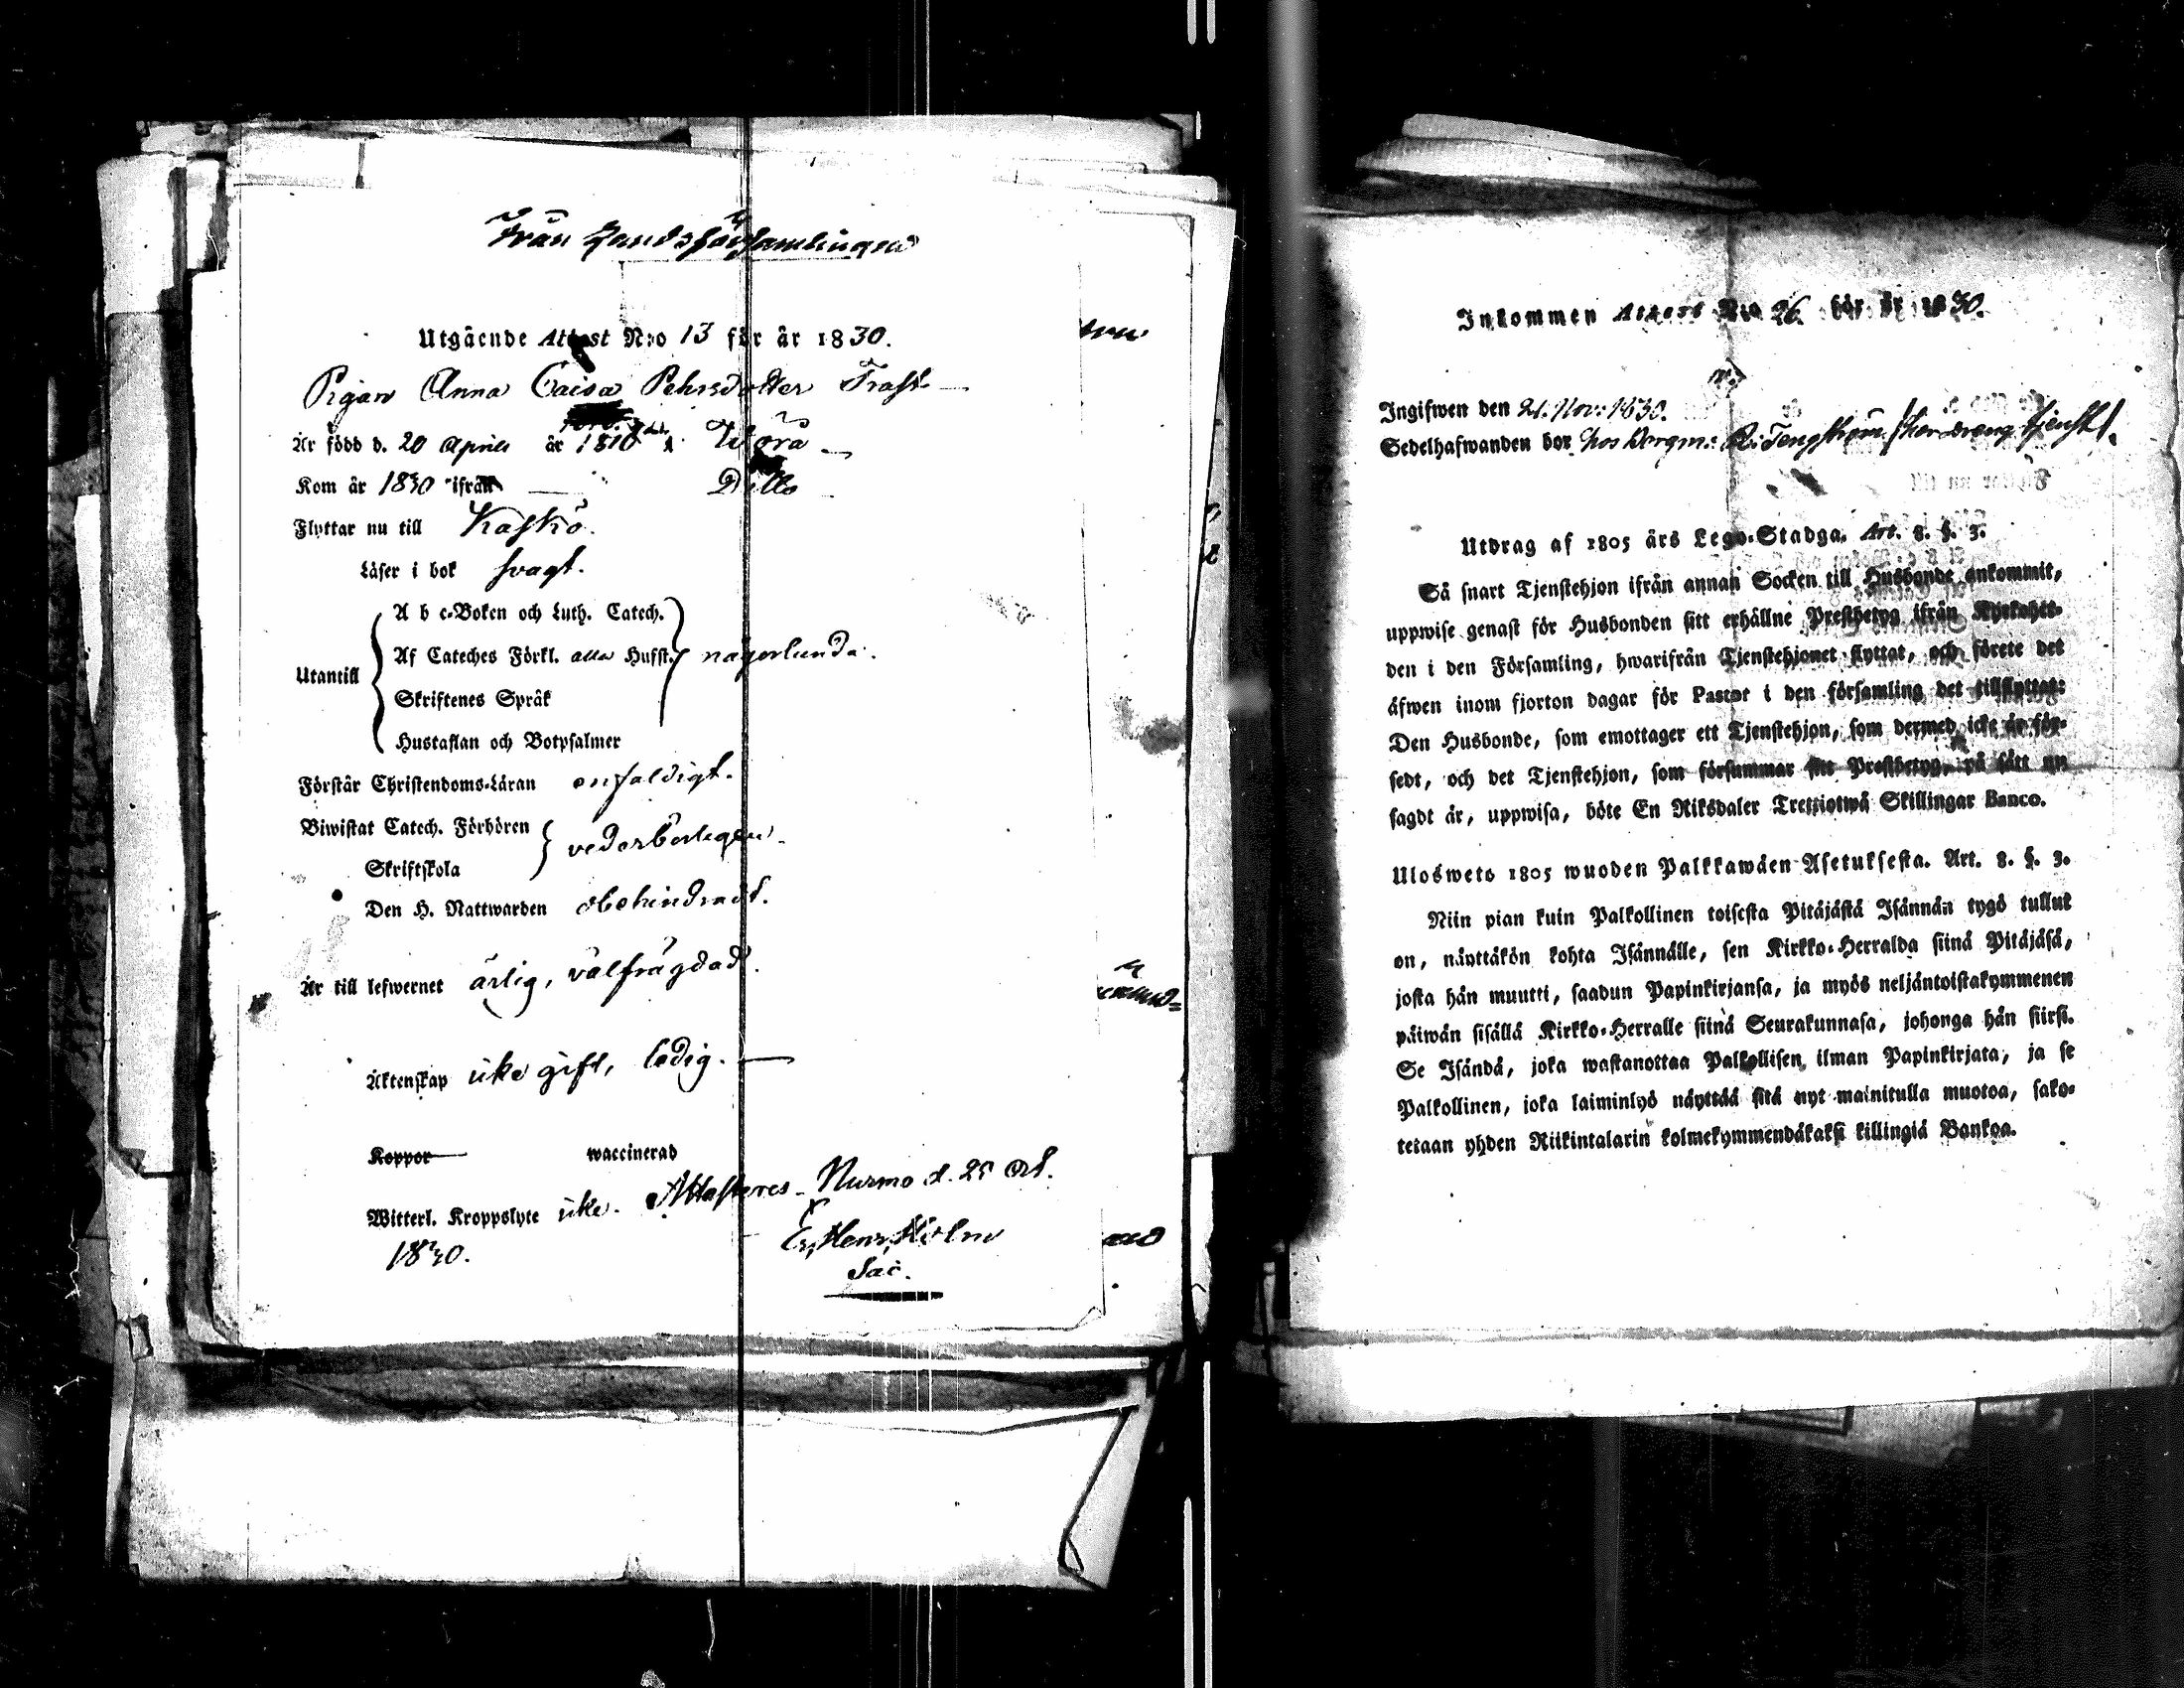 Från Landsförsamlingen
Utgående Attest N:o 13 för år 1830.
Pigan Anna Caisa Pehrsdotter Trast
Är född d. 20 April år 1810 i Wörå
Kom år 1830 ifrån Ditto
Flyttar nu till Kaskö.
Läser i bok svagt.
A b c-Boken och Luth. Catech.
Af Cateches Förkl. alla Hufst. någorlunda.
Utantill
Skriftenes Språk
Hustaflan och Botpsalmer
Förstår Christendoms-Läran enfaldigt.
Biwistat Catech. Förhören
vederbörligen.
Skriftskola
Den H. Nattwarden obehindradt.
Är till lefwernet ärlig, välfrägdad.
Äktenskap icke gift, ledig.
Koppor waccinerad
Witterl. Kroppslyte icke. Attesteres Nurmo d. 25 Oct.
1830.
Henr. Holm
Sac.
Inkommen Attest N:o 26. för år 1830.
Ingifwen den 21. Nov: 1830.
Sedelhafwanden bor hos Borgm: R. Tengström
Utdrag af 1805 års Lego-Stadga. Art. 8. §. 3.
Så snart Tjenstehjon ifrån annan Socken till Husbonde ankommit,
uppwise genast för Husbonden sitt erhållne Prestbetyg ifrån Kyrkoher-
den i den Församling, hwarifrån Tjenstehjonet flyttat, och förete det
äfwen inom fjorton dagar för Pastor i den församling det tillflyttat:
Den Husbonde, som emottager ett Tjenstehjon, som dermed icke är för-
sedt, och det Tjenstehjon, som försummar sitt Prestbetyg, på sätt nu
sagdt är, uppwisa, böte En Riksdaler Trettiotwå Skillingar Banco.
Ulosweto 1805 wuoden Palkkawäen Asetuksesta. Art. 8. §. 3.
Niin pian kuin Palkollinen toisesta Pitäjästä Isännän tygö tullut
on, näyttäkön kohta Isännälle, sen Kirkko-Herralda siinä Pitäjäsä,
josta hän muutti, saadun Papinkirjansa, ja myös neljäntoistakymmenen
päiwän sisällä Kirkko-Herralle siinä Seurakunnasa, johonga hän siirsi.
Se Isändä, joka wastanottaa Palkollisen ilman Papinkirjata, ja se
Palkollinen, joka laiminlyö näyttää sitä nyt mainitulla muotoa, sako-
tetaan yhden Riikintalarin kolmekymmendäkaksi killingiä Bankoa.